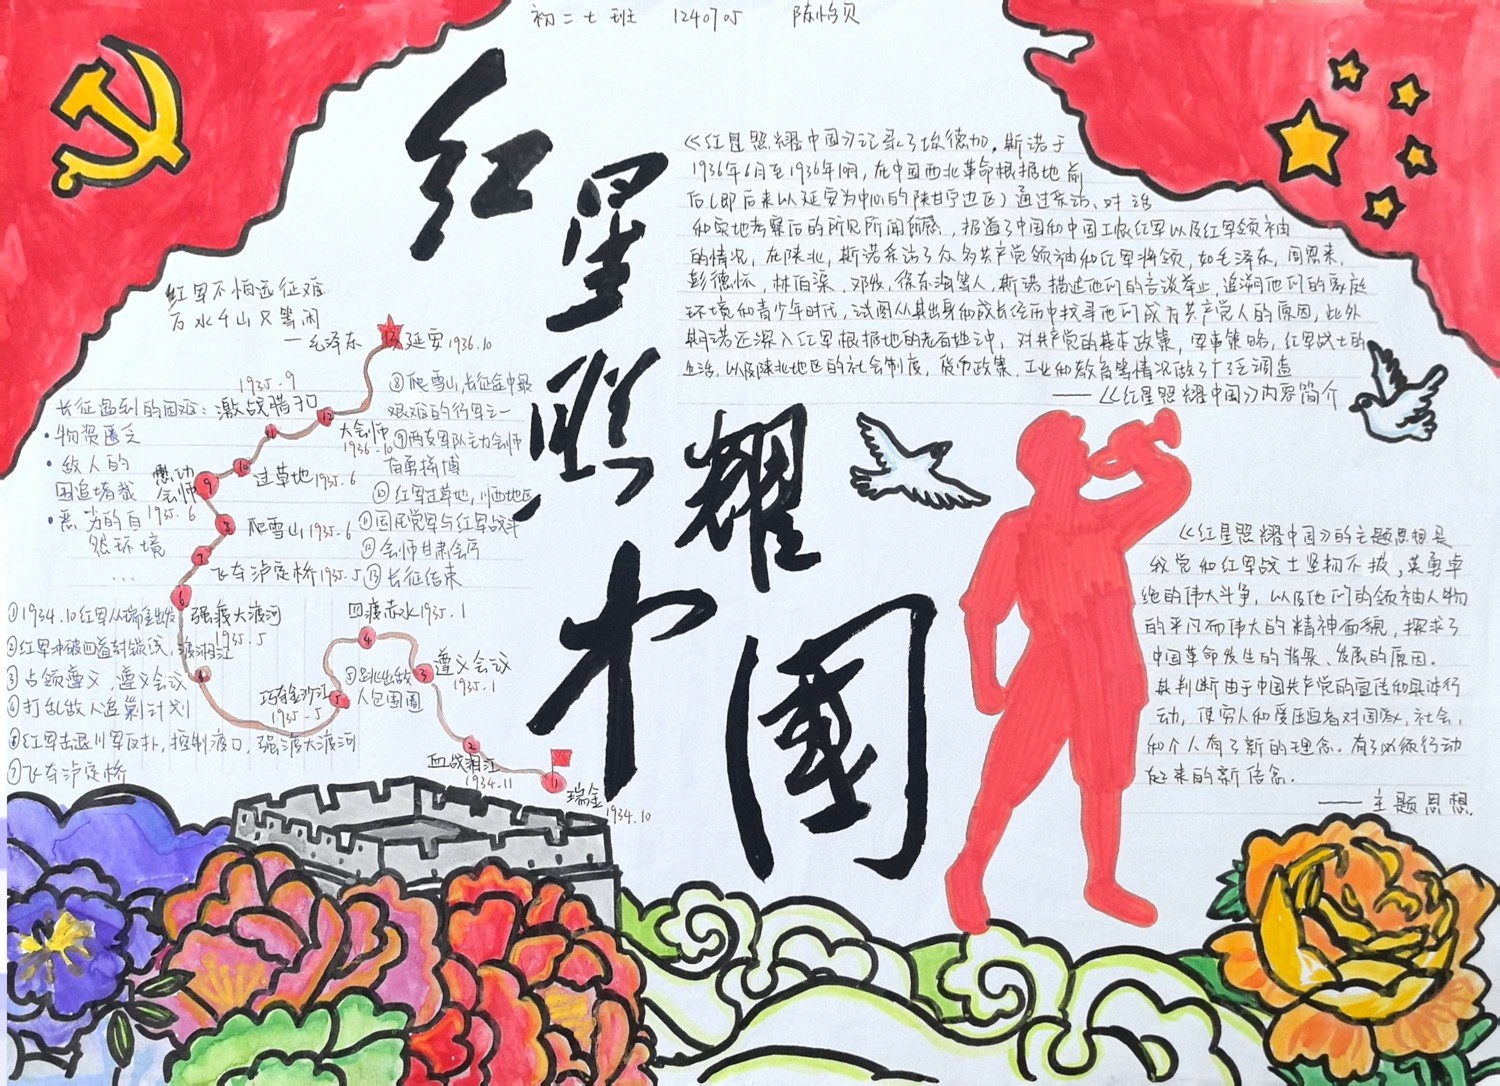 初二七班 1240705 陈怡贝
红星照耀中国
《红星照耀中国》记录了埃德加，斯诺于
1936年6月至1936年10月，在中国西北革命根据地前
后(即后来以延安为中心的陕甘宁边区)通过采访、对话
和实地考察后的所见所闻所感，报道了中国和中国工农红军以及红军领袖
的情况，在陕北，斯诺采访了众多共产党领袖和红军将领，如毛泽东，周恩来，
彭德怀，林伯渠，邓发，徐东海等人，斯诺描述他们的言谈举止，追溯他们的家庭
环境和青少年时代，试图从其出身和成长经历中找寻他们成为共产党人的原因，此外
斯诺还深入红军根据地的老百姓之中，对共产党的基本政策，军事策略，红军战士的
生活，以及陕北地区的社会制度，货币政策，工业和教育等情况做了广泛调查
——《红星照耀中国》内容简介
红军不怕远征难
万水千山只等闲
—毛泽东
长征遇到的困难：
·物资匮乏
·敌人的
围追堵截
·恶劣的自
然环境
...
13 延安1936.10
1935.9
激战腊子口
12
大会师
1936.10
11
10 过草地1935.6
9
懋功
会师
1935.6
8 爬雪山1935.6
7 飞夺泸定桥1935.5
6 强渡大渡河
1935.5
渡湘江
四渡赤水1935.1
4
3 遵义会议
1935.1
巧夺金沙江
1935.5
5
2
血战湘江
1934.11
1 瑞金
1934.10
⑧爬雪山，长征途中最
艰难的行军之一
⑨两支军队主力会师
⑩红军过草地，川西地区
⑪国民党军与红军战斗
⑫会师甘肃会宁
⑬长征结束
①1934.10红军从瑞金出发
②红军冲破四道封锁线
③占领遵义，遵义会议
④打乱敌人追剿计划
⑤跳出敌
人包围圈
⑥红军击退川军反扑，控制渡口，强渡大渡河
⑦飞夺泸定桥
《红星照耀中国》的主题思想是
我党和红军战士坚韧不拔，英勇卓
绝的伟大斗争，以及他们的领袖人物
的平凡而伟大的精神面貌，探求了
中国革命发生的背景、发展的原因。
其判断由于中国共产党的宣传和具体行
动，使穷人和受压迫者对国家，社会，
和个人有了新的理念。有了必须行动
起来的新信念。
——主题思想.